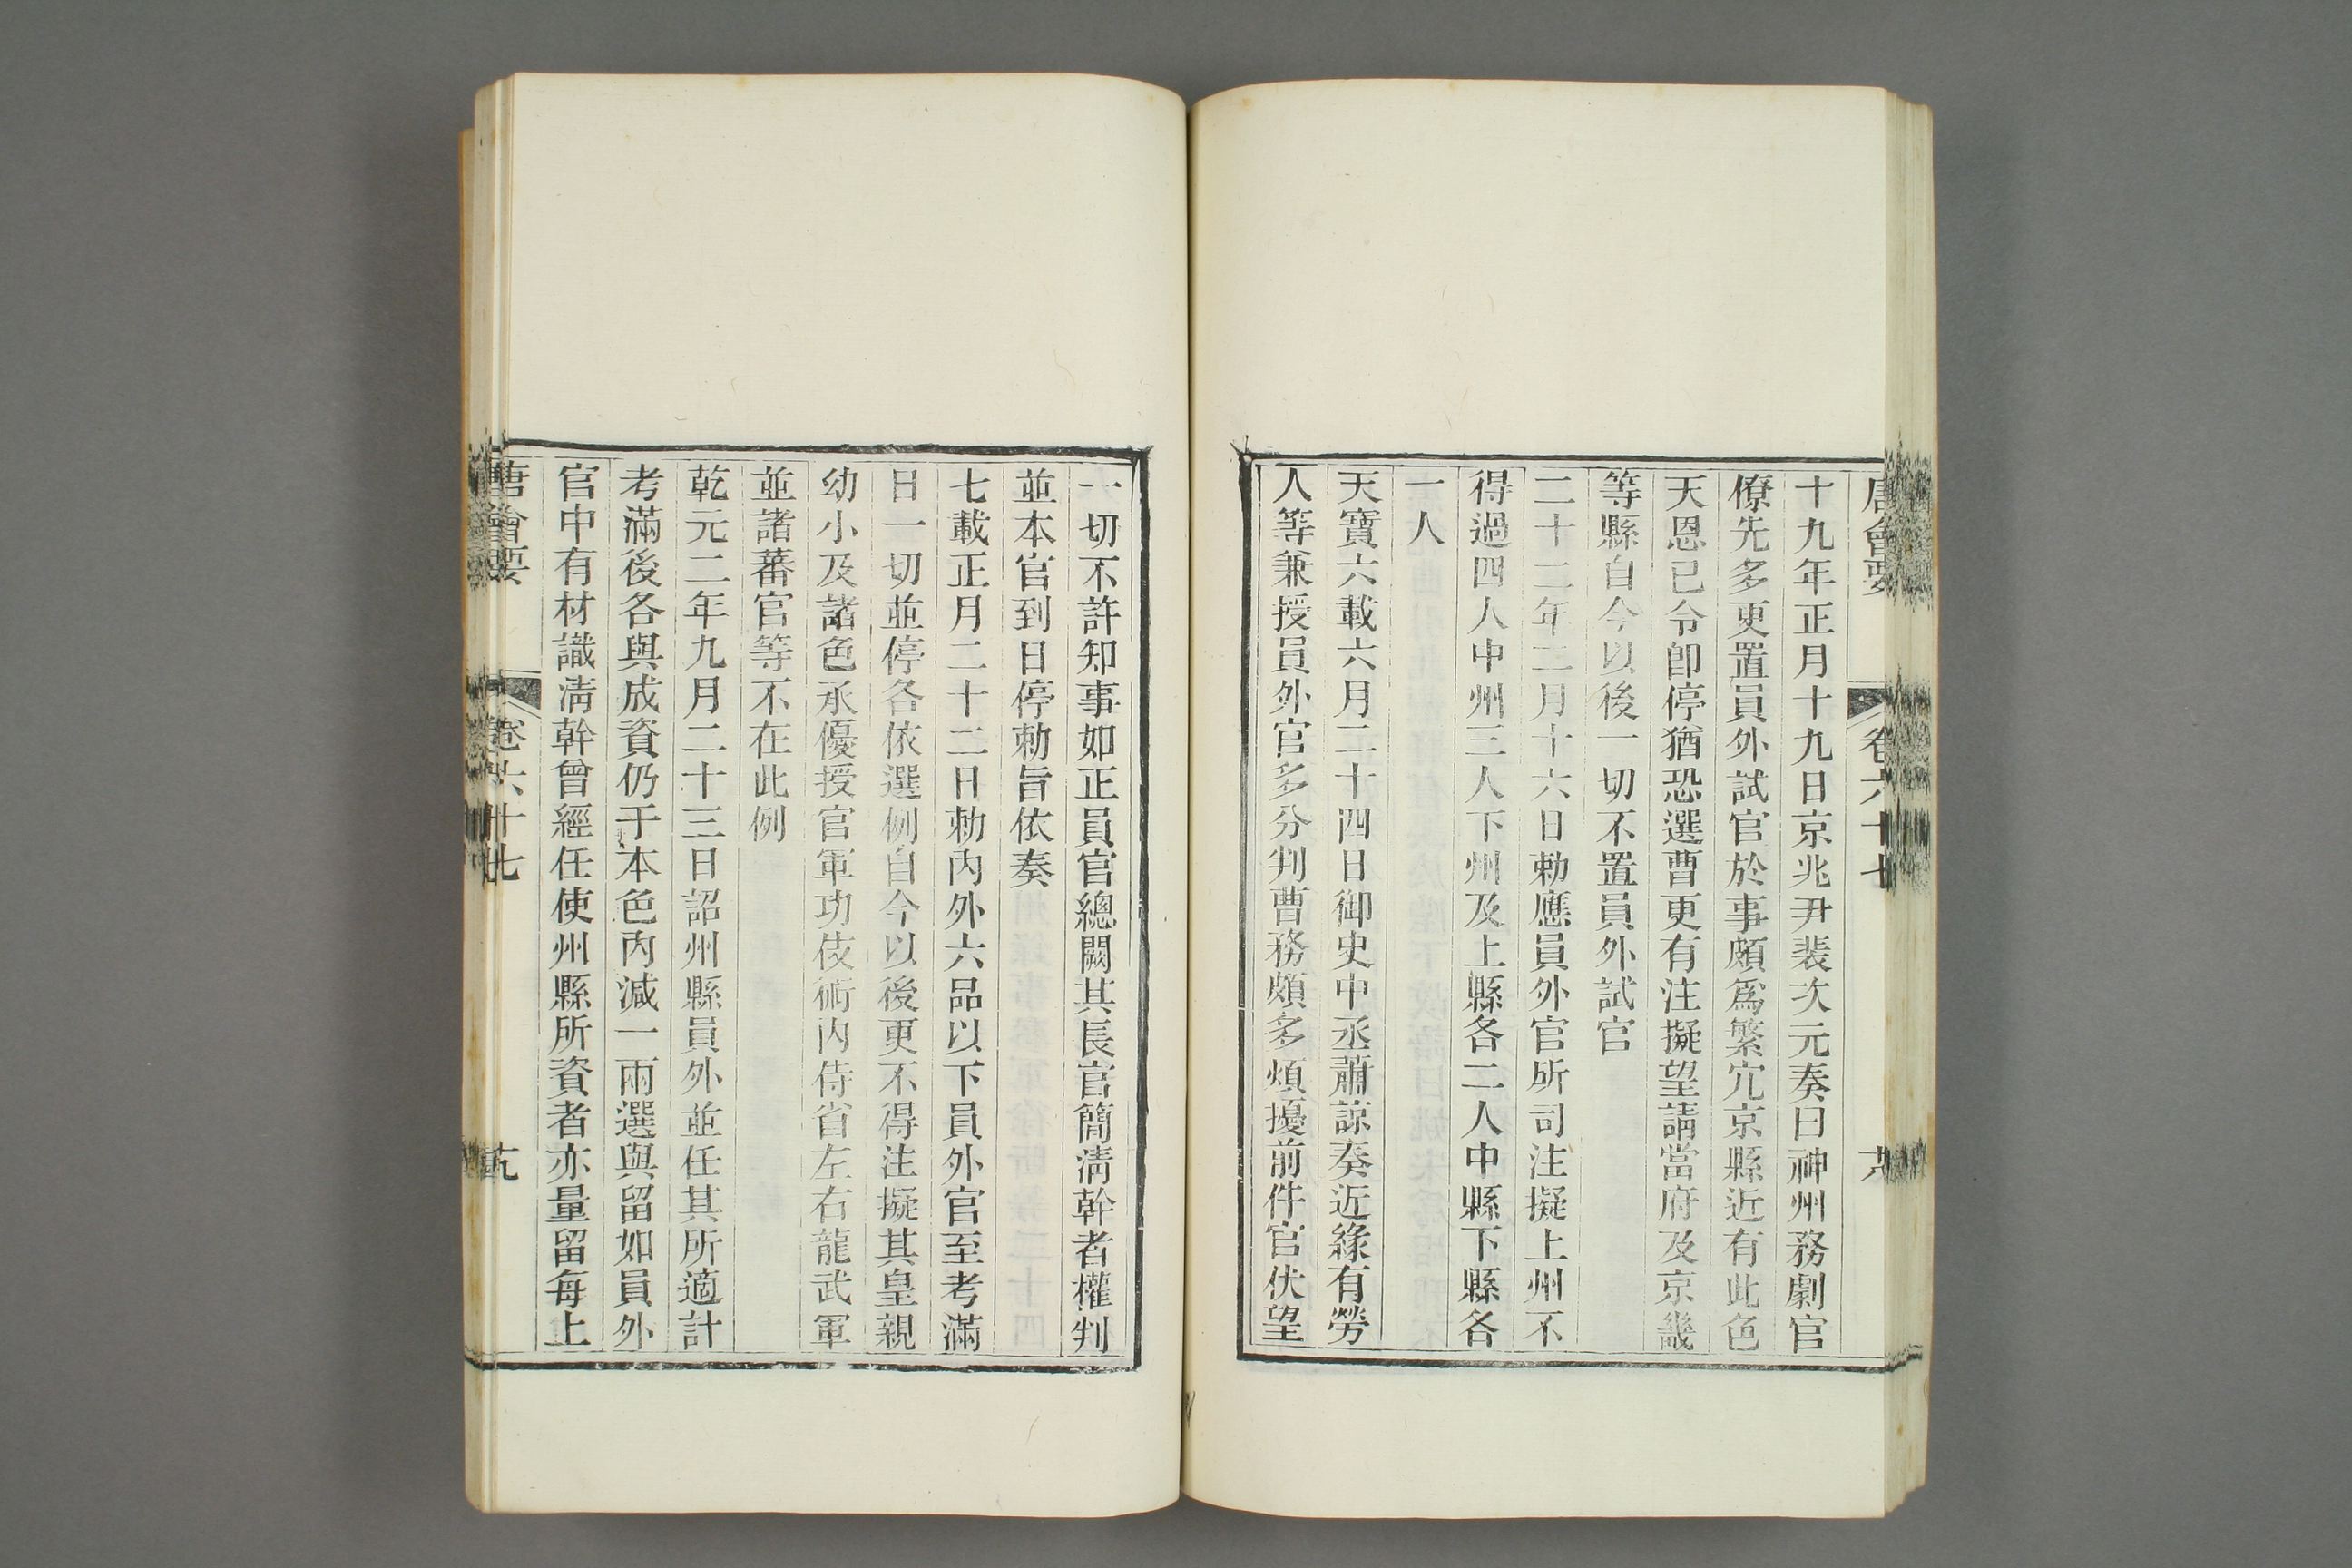 唐會要 卷六十七 六
十九年正月十九日京兆尹裴次元奏曰神州務劇官
僚先多更置員外試官於事頗爲繁宂京縣近有此色
天恩已令卽停猶恐選曹更有注擬望請當府及京畿
等縣自今以後一切不置員外試官
二十二年二月十六日勅應員外官所司注擬上州不
得過四人中州三人下州及上縣各二人中縣下縣各
一人
天寶六載六月二十四日御史中丞蕭諒奏近緣有勞
人等兼授員外官多分判曹務頗多煩擾前件官伏望
一切不許知事如正員官總闕其長官簡淸幹者權判
並本官到日停勅旨依奏
七載正月二十二日勅內外六品以下員外官至考滿
日一切並停各依選例自今以後更不得注擬其皇親
幼小及諸色承優授官軍功伎術內侍省左右龍武軍
並諸蕃官等不在此例
乾元二年九月二十三日詔州縣員外並任其所適計
考滿後各與成資仍于本色內減一兩選與留如員外
官中有材識淸幹曾經任使州縣所資者亦量留每上
唐會要 卷六十七